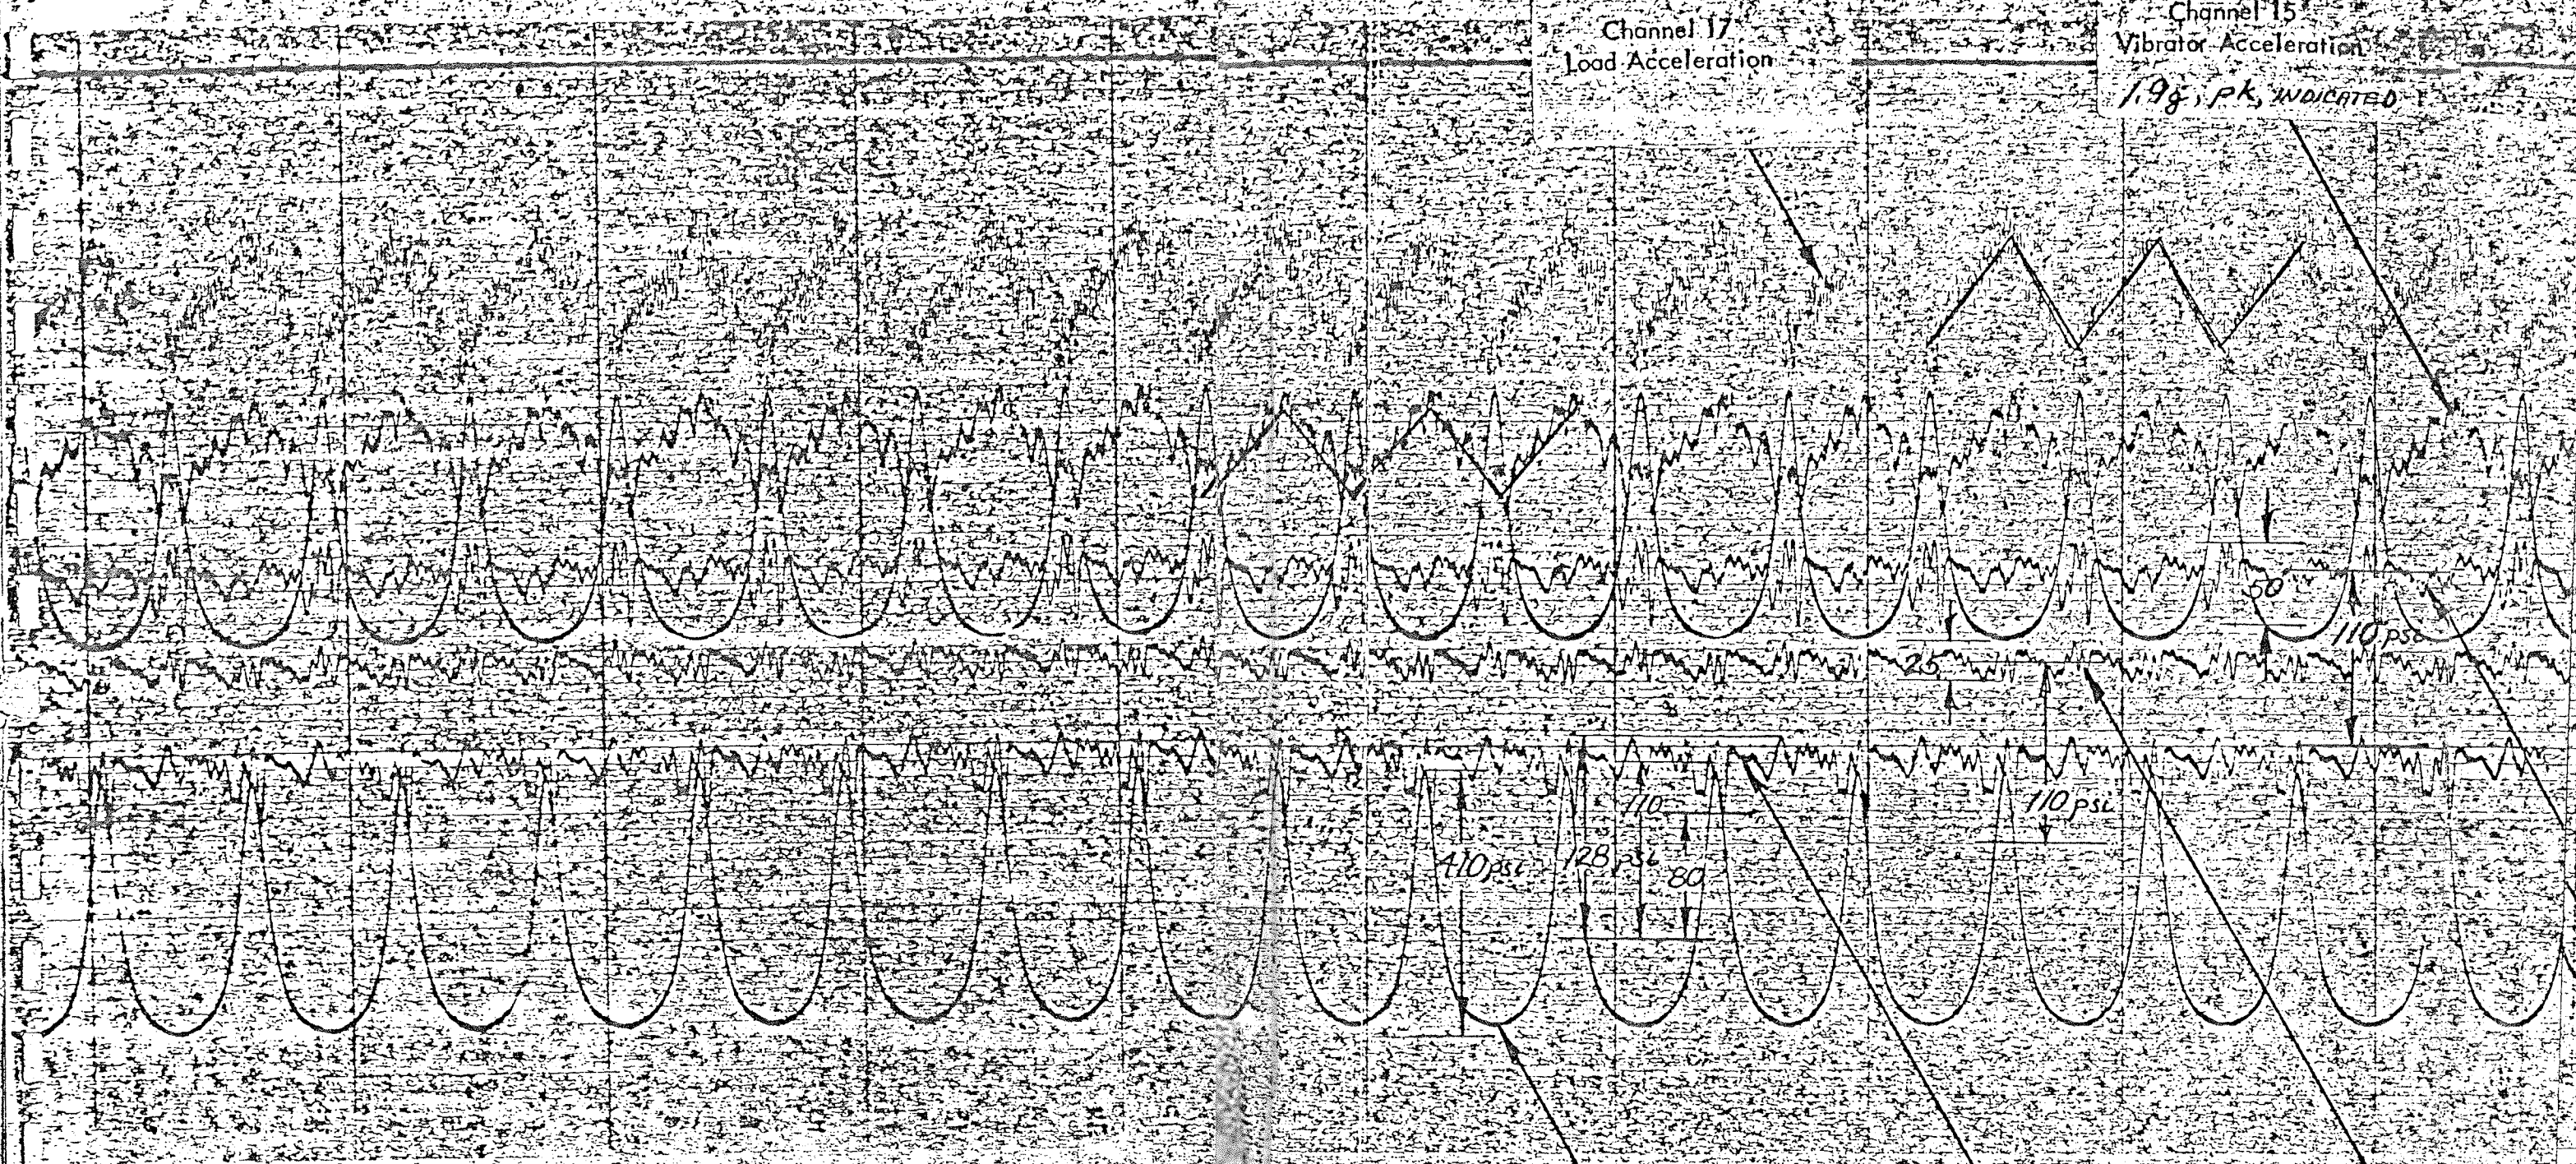 Channel 17
Load Acceleration
Channel 15
Vibrator Acceleration
1.9g, pk, INDICATED
50
110 psi
25
110
110 psi
410 psi
128 psi
80